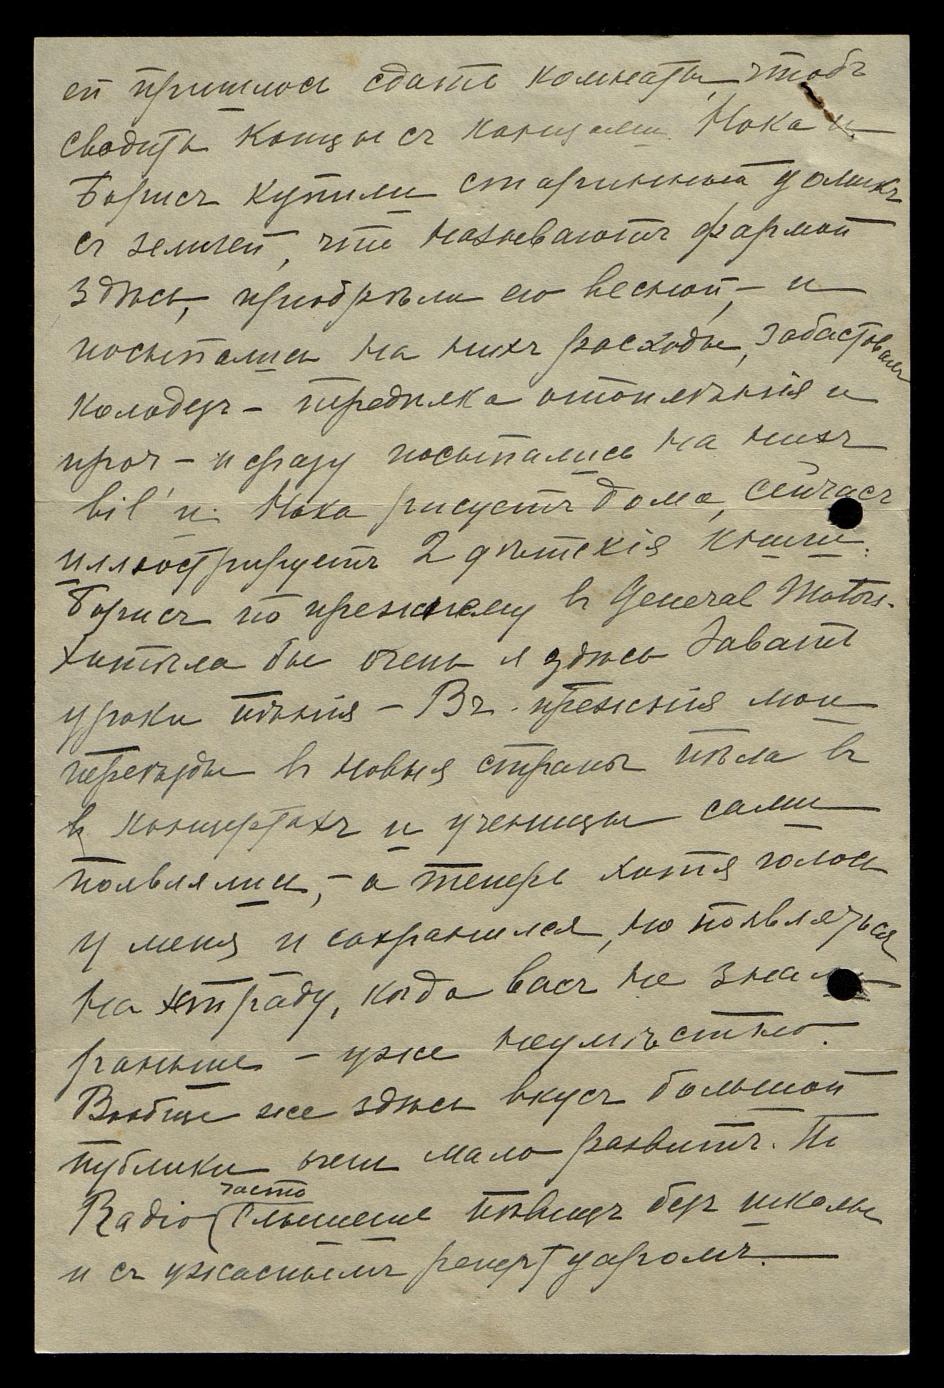 ей пришлось сдать комнаты, чтобъ
сводить концы съ концами. Нока и
Борисъ купили старинный домикъ
съ землей, что называютъ фармой
здѣсь, пріобрѣли его весной, – и
посыпались на нихъ расходы, забастовалъ
колодецъ – передѣлка отопленія и
проч – и сразу посыпались на нихъ
bil'и. Нока рисуетъ дома, сейчасъ
иллюстрируетъ 2 дѣтскія книги.
Борисъ по прежнему въ General Motors.
Хотѣла бы очень я здѣсь давать
уроки пѣнія – Въ прежнія мои
переѣзды въ новыя страны пѣла въ
въ концертахъ и ученицы сами
появлялись, – а теперь хотя голосъ
у меня и сохранился, но появляться
на эстраду, когда васъ не знали
раньше – уже неумѣстно.
Вообще же здѣсь вкусъ большой
публики очень мало развитъ. По
Radio часто слышишь пѣвицъ безъ школы
и съ ужаснымъ репертуаромъ.